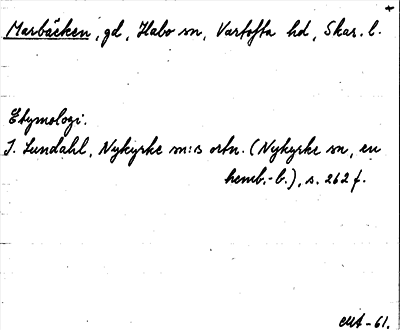 Marbäcken, gd, Habo sn, Vartofta hd, Skar. l.
Etymologi.
I. Lundahl, Nykyrke sn:s ortn. (Nykyrke sn, en
hemb.-b.), s. 262 f.
-61.